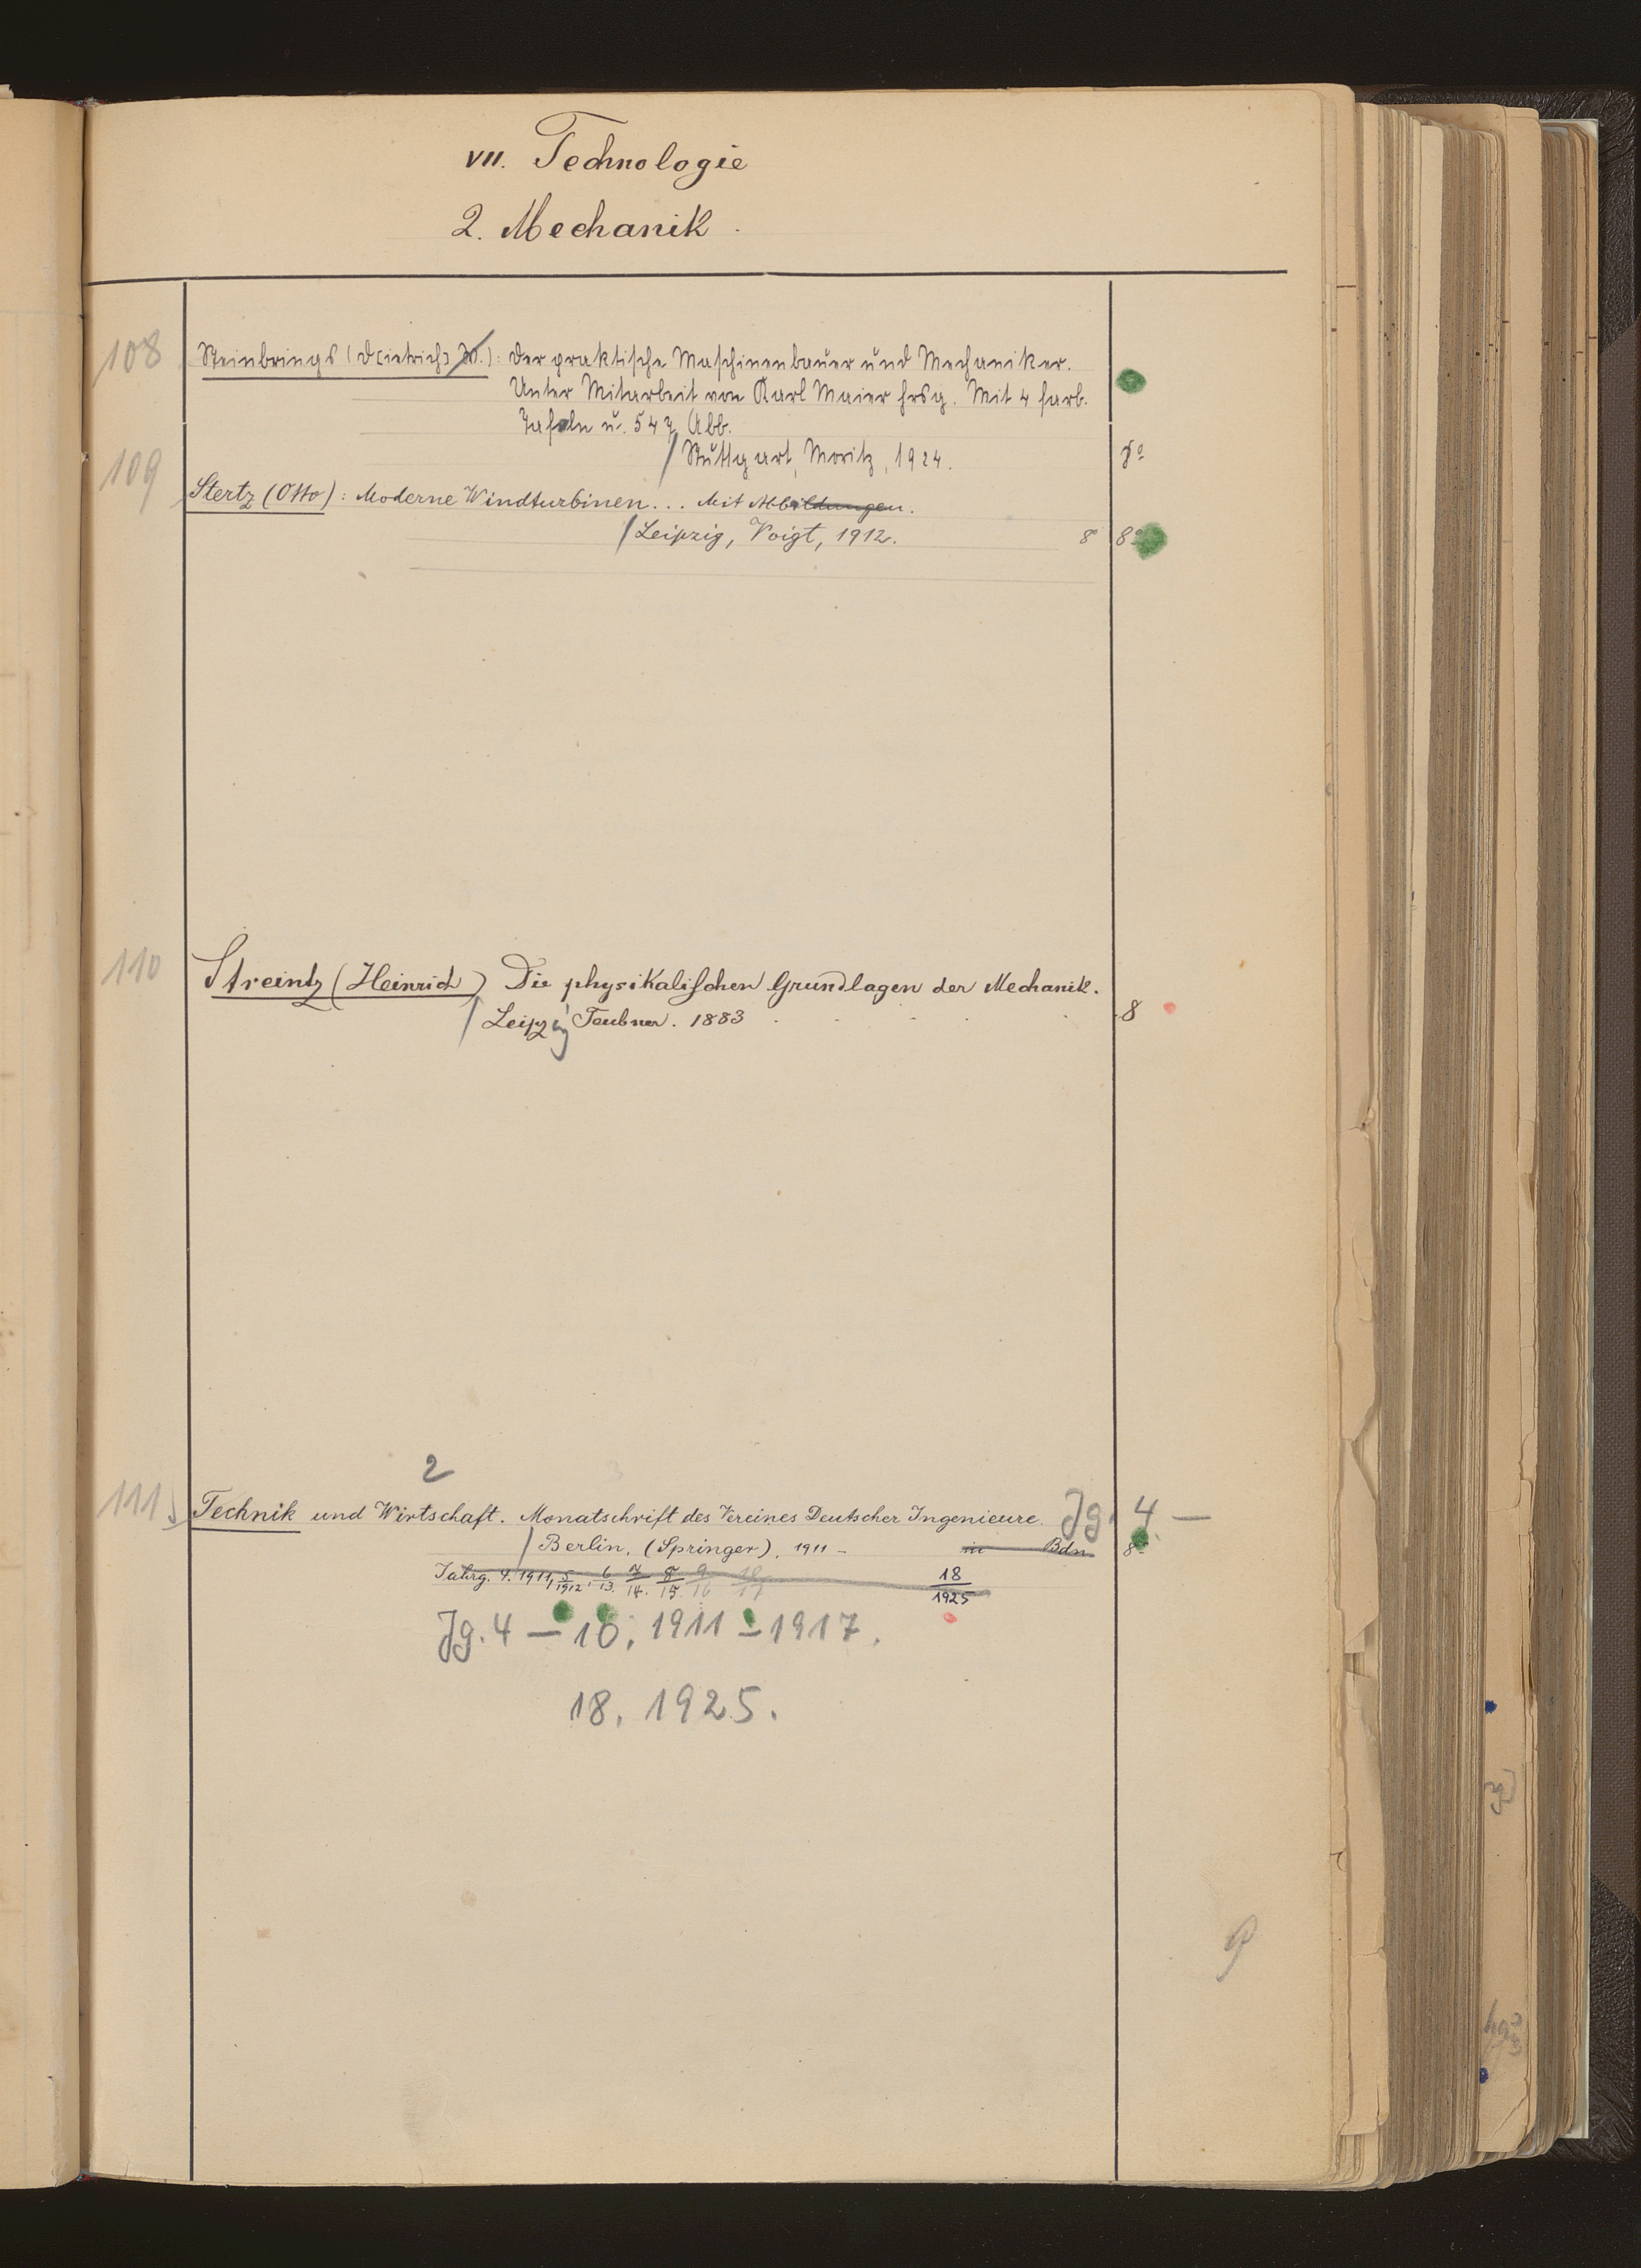 VII. Technologie
2. Mechanik.
108 Steinbrings (D[ietrich] W.): Der praktische Maschinenbauer und Mechaniker.
Unter Mitarbeit von Karl Maier hrsg. Mit 4 farb.
Tafeln u. 547 Abb.
/ Stuttgart, Moritz, 1924. 8°
109 Stertz (Otto): Moderne Windturbinen... Mit Abbildungen.
/ Leipzig, Voigt, 1912. 8° 8°
110 Streintz (Heinrich) Die physikalischen Grundlagen der Mechanik.
/ Leipzig Teubner. 1883 8
2
111 Technik und Wirtschaft. Monatschrift des Vereines Deutscher Ingenieure. Jg. 4 —
/ Berlin, (Springer), 1911 – in Bdn 8°
Jahrg. 4. 1911, 5/1912, 6/13. 7/14. 8/15 9/16 10/17 18/1925
Jg. 4 – 10. 1911 – 1917.
18. 1925.